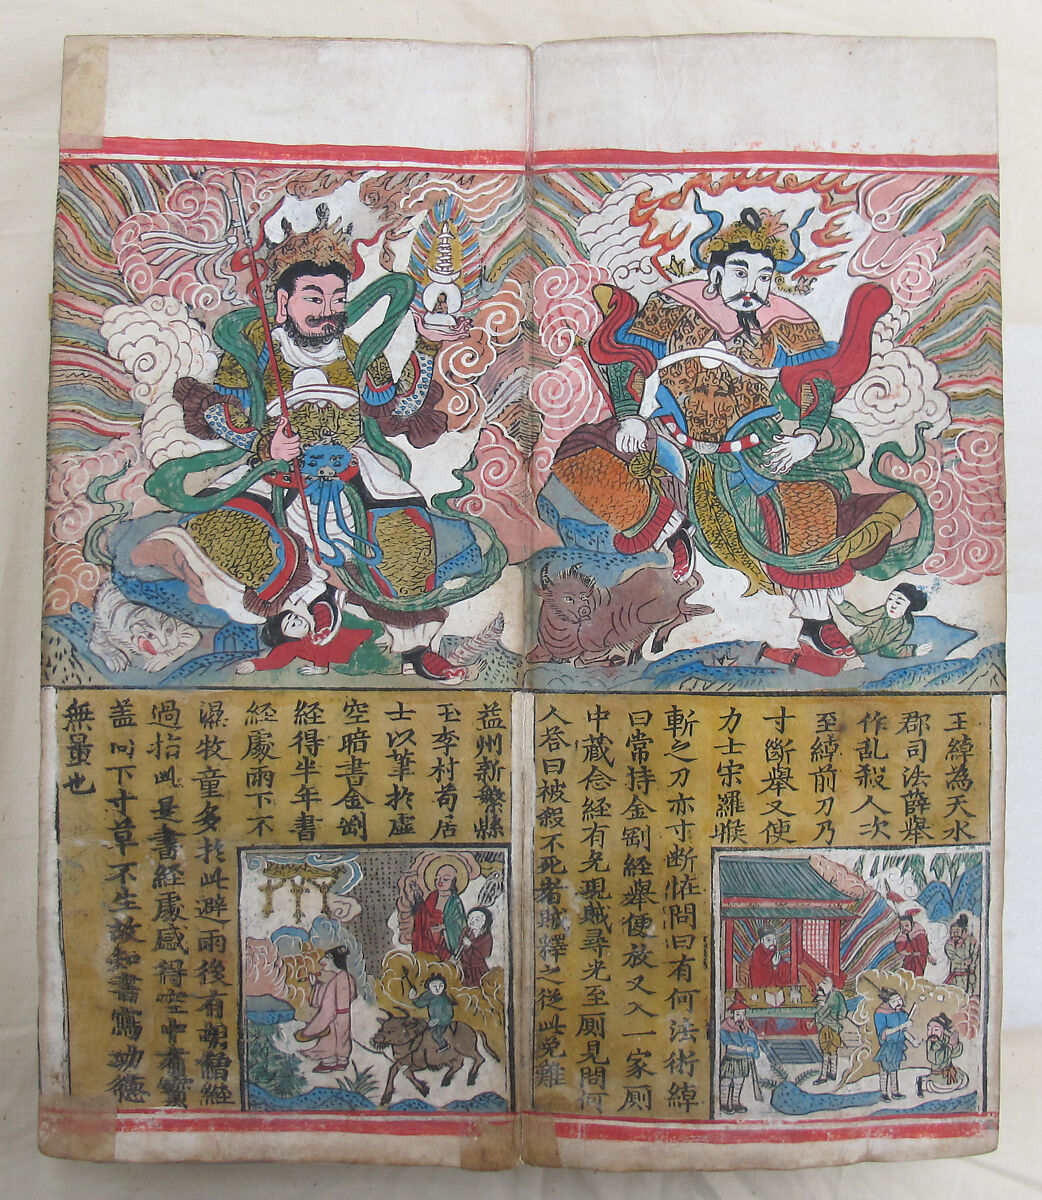 王綽為天水
郡司法薛舉
作乱殺人次
至綽前刀乃
寸斷舉又使
力士宋羅睺
斬之刀亦寸斷恠問曰有何法術綽
曰常持金剛經舉便放又入一家厠
中藏念經有光現賊尋光至厠見問何
人荅曰被殺不死者賊釋之從此免難
益州新繁縣
王李村苟居
士以筆扵虛
空暗書金剛
經得半年書
經處雨下不
濕牧童多扵此避雨後有胡僧經
過指此是書經處感得空中有寶
盖向下寸草不生故知書寫功德
無量也